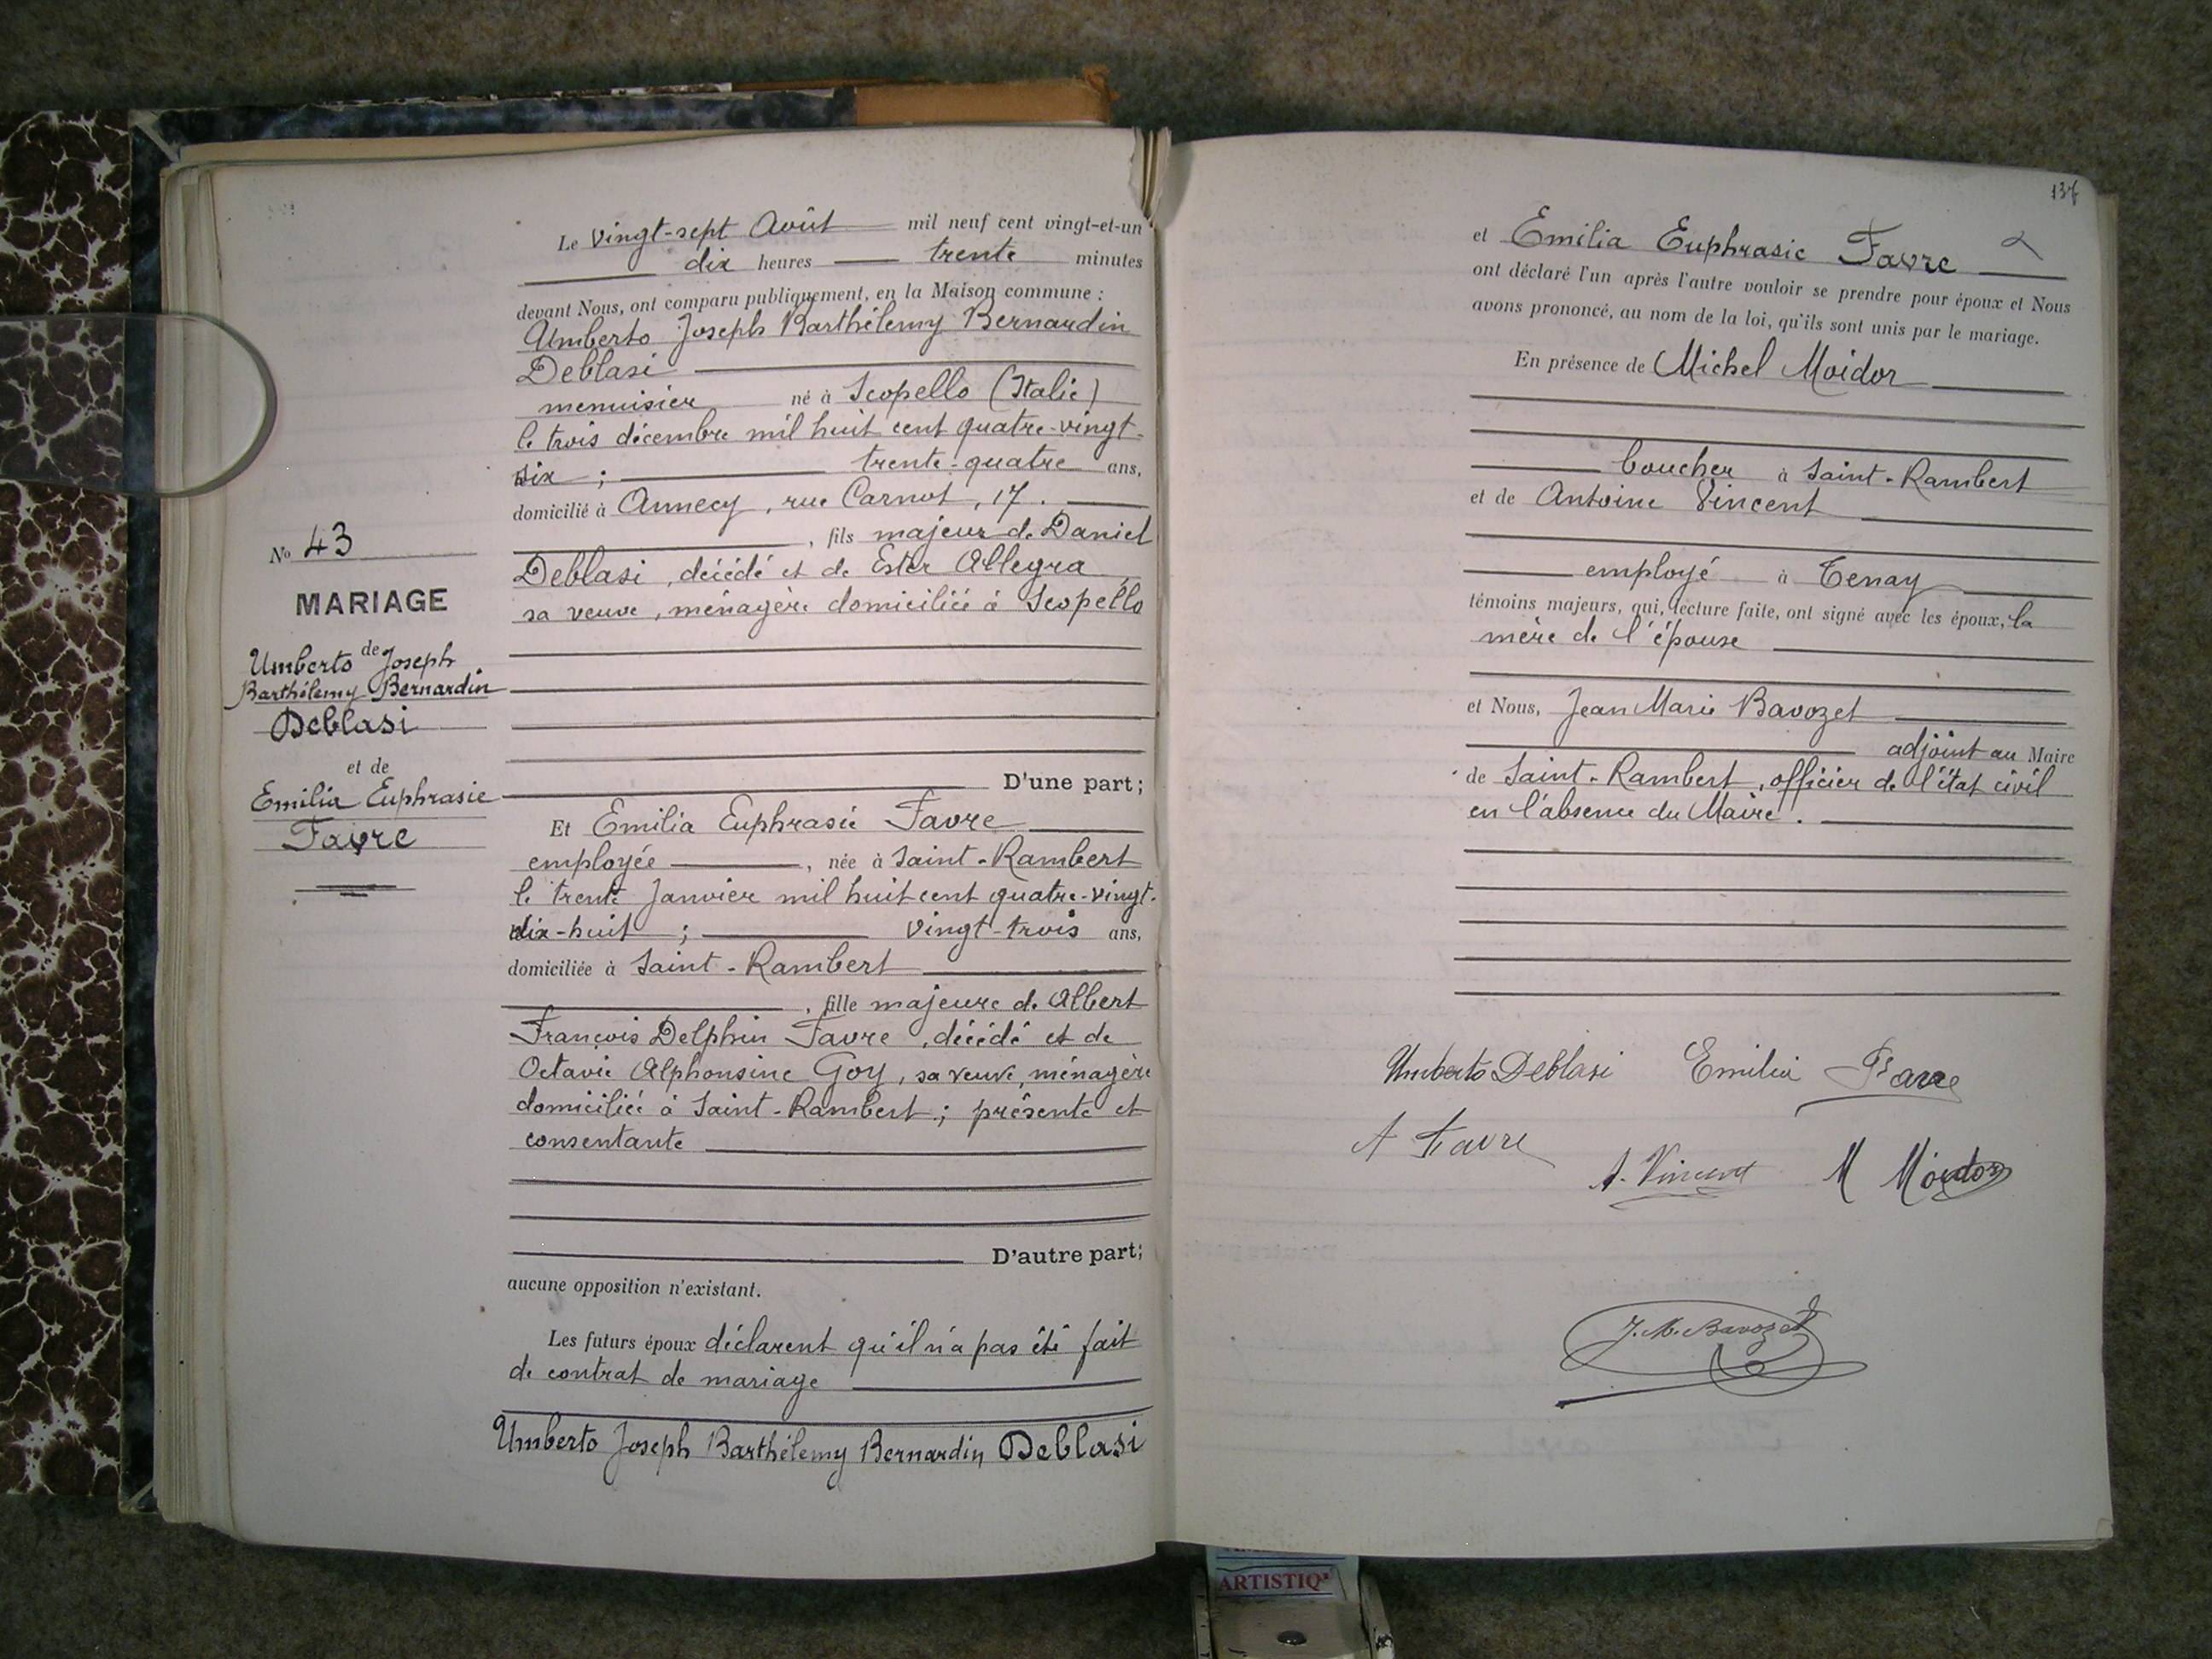 Le vingt-sept Août mil neuf cent vingt-et-un
dix heures trente minutes
devant Nous, ont comparu publiquement, en la Maison commune :
Umberto Joseph Barthélemy Bernardin
Deblasi
menuisier né à Scopello (Italie)
le trois décembre mil huit cent quatre-vingt-
six ; trente-quatre ans,
domicilié à Annecy, rue Carnot, 17.
, fils majeur de Daniel
Deblasi, décédé et de Ester Allegra
sa veuve, ménagère domiciliée à Scopello
No 43
MARIAGE
de
Umberto Joseph
Barthélemy Bernardin
Deblasi
et de
Emilia Euphrasie
Favre
D'une part;
Et Emilia Euphrasie Favre
employée, née à Saint-Rambert
le trente Janvier mil huit cent quatre-vingt-
dix-huit ; vingt-trois ans,
domiciliée à Saint-Rambert
, fille majeure de Albert
François Delphin Favre, décédé et de
Octavie Alphonsine Goy, sa veuve, ménagère
domiciliée à Saint-Rambert ; présente et
consentante
D'autre part;
aucune opposition n'existant.
Les futurs époux déclarent qu'il n'a pas été fait
de contrat de mariage
Umberto Joseph Barthélemy Bernardin Deblasi
137
et Emilia Euphrasie Favre
ont déclaré l'un après l'autre vouloir se prendre pour époux et Nous
avons prononcé, au nom de la loi, qu'ils sont unis par le mariage.
En présence de Michel Moidor
boucher à Saint-Rambert
et de Antoine Vincent
employé à Tenay
témoins majeurs, qui, lecture faite, ont signé avec les époux, la
mère de l'épouse
et Nous, Jean Marie Bavozet
adjoint au Maire
de Saint-Rambert, officier de l'état civil
en l'absence du Maire.
Umberto Deblasi Emilia Favre
A Favre
A. Vincent M Moidor
J. M. Bavozet
ARTISTIQ